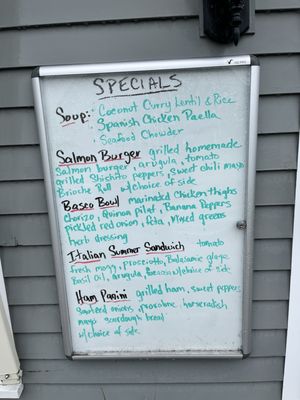 SPECIALS
Soup: Coconut Curry Lentil & Rice
Spanish Chicken Paella
Seafood Chowder
Salmon Burger grilled homemade
Salmon burger, arugula, tomato
grilled Shishito peppers, sweet chili mayo
Brioche Roll w/choice of side
Basco Bowl marinated Chicken thighs
Chorizo, Quinoa pilaf, Banana Peppers
Pickled red onion, feta, Mixed greens
herb dressing
Italian Summer Sandwich tomato
fresh mozz, Prosciutto, Balsamic glaze
Basil Oil, arugula, w/choice of side
Ham Panini grilled ham, sweet peppers
sauteed onions, provolone, horseradish
mayo sourdough bread
w/choice of side